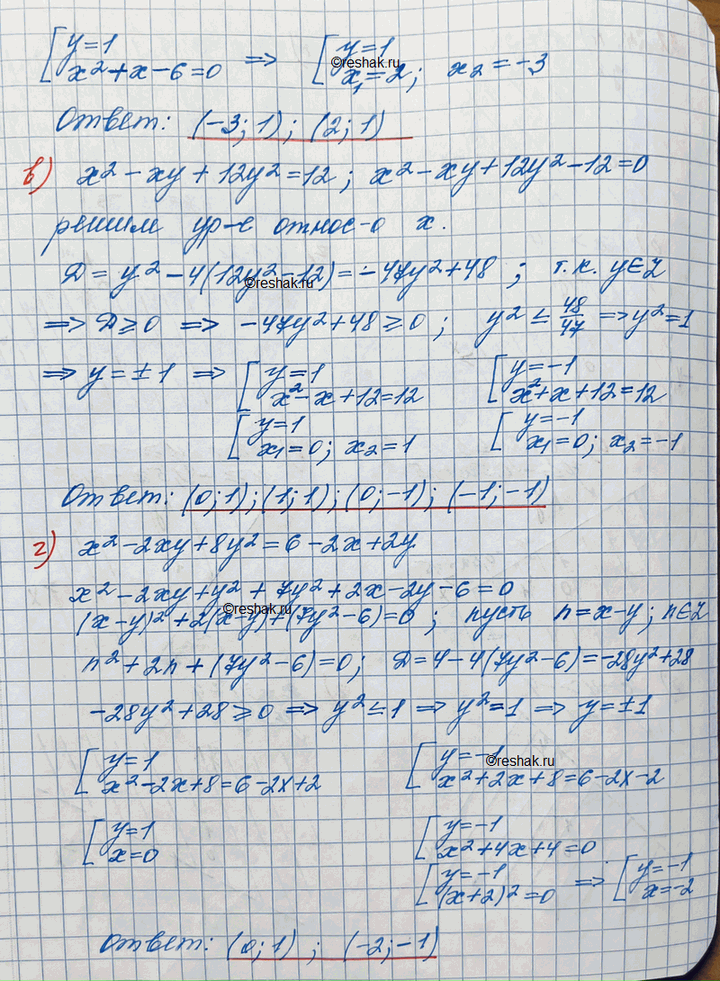 [ y=1 => [ y=1
x²+x-6=0 x₁=2; x₂=-3
©reshak.ru
Ответ: (-3; 1); (2; 1)
в) x²-xy+12y²=12; x²-xy+12y²-12=0
решим ур-е относ-о x.
D=y²-4(12y²-12)=-47y²+48; т.к. y∈Z
©reshak.ru
=> D≥0 => -47y²+48≥0; y²≤48/47 => y²=1
=> y=±1 => [ y=1 [ y=-1
x²-x+12=12 x²+x+12=12
[ y=1 [ y=-1
x₁=0; x₂=1 x₁=0; x₂=-1
Ответ: (0; 1); (1; 1); (0; -1); (-1; -1)
г) x²-2xy+8y²=6-2x+2y
x²-2xy+y²+7y²+2x-2y-6=0
©reshak.ru
(x-y)²+2(x-y)+(7y²-6)=0; пусть n=x-y; n∈Z
n²+2n+(7y²-6)=0; D=4-4(7y²-6)=-28y²+28
-28y²+28≥0 => y²≤1 => y²=1 => y=±1
[ y=1 [ y=-1
©reshak.ru
x²-2x+8=6-2x+2 x²+2x+8=6-2x-2
[ y=1 [ y=-1
x=0 x²+4x+4=0
[ y=-1 => [ y=-1
(x+2)²=0 x=-2
Ответ: (0; 1); (-2; -1)